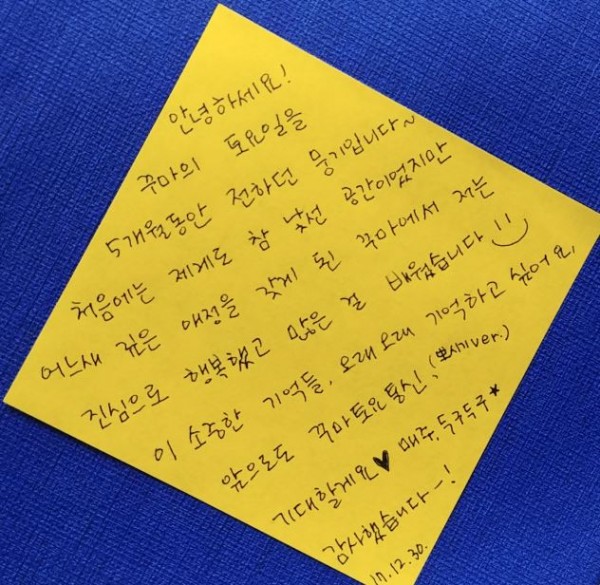 안녕하세요!
쭈마의 토요일을
5개월동안 전하던 뭉기입니다~
처음에는 제게도 참 낯선 공간이었지만
어느새 깊은 애정을 갖게 된 쭈마에서 저는
진심으로 행복했고 많은 걸 배웠습니다
이 소중한 기억들, 오래오래 기억하고 싶어요,
앞으로도 쭈마토요통신, (뽀시ver.)
기대할게요♥ 매주, 두구두구★
감사했습니다-!
17.12.30.